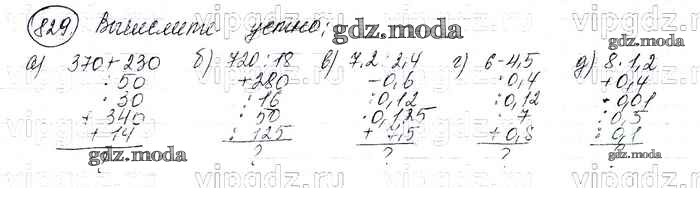 829. Вычислите устно:
а) 370+230 б) 720:18 в) 7,2:2,4 г) 6-4,5 д) 8·1,2
:50 +280 -0,6 :0,4 +0,4
·30 :16 :0,12 :0,12 ·0,01
+340 ·50 ·0,125 ·7 :0,5
+14 :125 +7,5 +0,8 :0,1
? ? ? ? ?
gdz.moda
gdz.moda
gdz.moda
vipgdz.ru